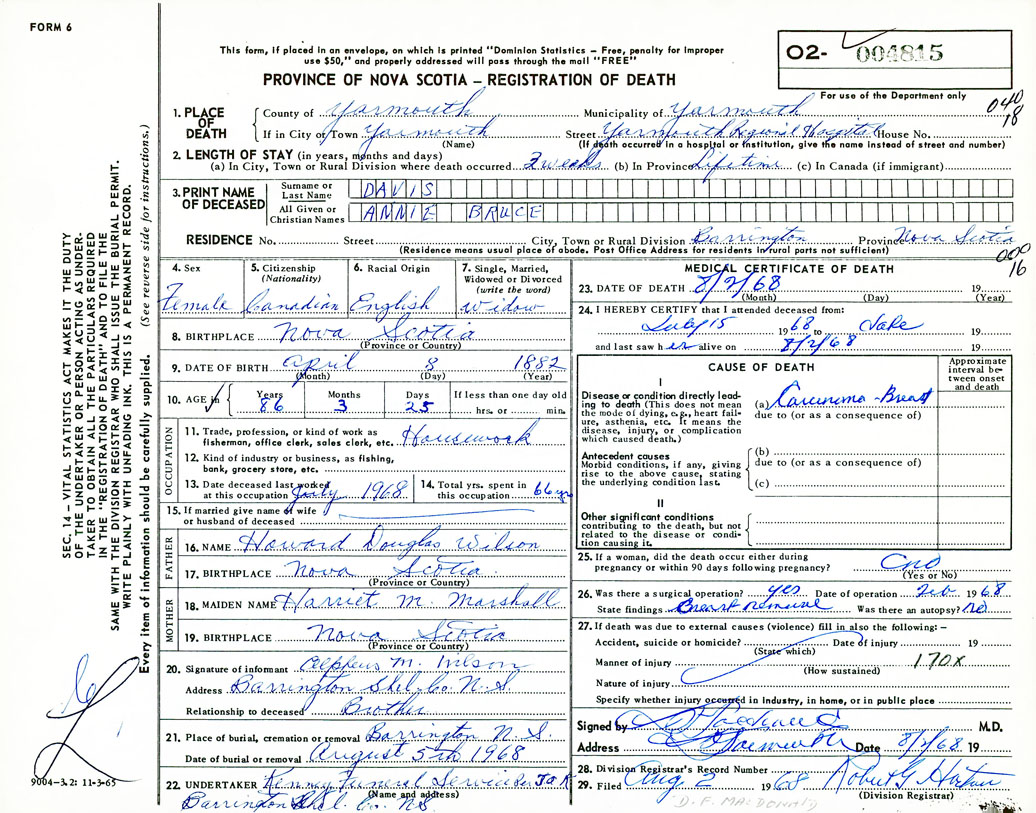 FORM 6
This form, if placed in an envelope, on which is printed "Dominion Statistics – Free, penalty for improper
use $50," and properly addressed will pass through the mail "FREE"
PROVINCE OF NOVA SCOTIA – REGISTRATION OF DEATH
O2- 004815
For use of the Department only
040
18
1. PLACE OF DEATH
County of Yarmouth Municipality of Yarmouth
If in City or Town Yarmouth Street Yarmouth Regional Hospital House No.
(Name) (If death occurred in a hospital or institution, give the name instead of street and number)
2. LENGTH OF STAY (in years, months and days)
(a) In City, Town or Rural Division where death occurred 3 weeks (b) In Province Lifetime (c) In Canada (if immigrant)
3. PRINT NAME OF DECEASED
Surname or Last Name DAVIS
All Given or Christian Names ANNIE BRUCE
RESIDENCE No. Street City, Town or Rural Division Barrington Province Nova Scotia
(Residence means usual place of abode. Post Office Address for residents in rural parts not sufficient)
000
16
4. Sex Female
5. Citizenship (Nationality) Canadian
6. Racial Origin English
7. Single, Married, Widowed or Divorced (write the word) Widow
8. BIRTHPLACE Nova Scotia
(Province or Country)
9. DATE OF BIRTH April 8 1882
(Month) (Day) (Year)
10. AGE in Years 86 Months 3 Days 25 If less than one day old
hrs. or min.
OCCUPATION
11. Trade, profession, or kind of work as
fisherman, office clerk, sales clerk, etc. Housework
12. Kind of industry or business, as fishing,
bank, grocery store, etc.
13. Date deceased last worked
at this occupation July 1968
14. Total yrs. spent in
this occupation 66 yrs
15. If married give name of wife
or husband of deceased
FATHER
16. NAME Howard Douglas Wilson
17. BIRTHPLACE Nova Scotia
(Province or Country)
MOTHER
18. MAIDEN NAME Harriet M. Marshall
19. BIRTHPLACE Nova Scotia
(Province or Country)
20. Signature of informant Alpheus M. Wilson
Address Barrington Shel. Co. N.S.
Relationship to deceased Brother
21. Place of burial, cremation or removal Barrington N.S.
Date of burial or removal August 5th 1968
22. UNDERTAKER Kenney Funeral Services
(Name and address)
Barrington Shel. Co. NS
MEDICAL CERTIFICATE OF DEATH
23. DATE OF DEATH 8/2/68 19
(Month) (Day) (Year)
24. I HEREBY CERTIFY that I attended deceased from:
July 15 1968 to Date 19
and last saw her alive on 8/2/68 19
CAUSE OF DEATH
Approximate interval between onset and death
I
Disease or condition directly leading to death (This does not mean
the mode of dying, e.g., heart failure, asthenia, etc. It means the
disease, injury, or complication
which caused death.)
(a) Carcinoma - Breast
due to (or as a consequence of)
Antecedent causes
Morbid conditions, if any, giving
rise to the above cause, stating
the underlying condition last.
(b)
due to (or as a consequence of)
(c)
II
Other significant conditions
contributing to the death, but not
related to the disease or condition causing it.
25. If a woman, did the death occur either during
pregnancy or within 90 days following pregnancy? no
(Yes or No)
26. Was there a surgical operation? yes Date of operation Feb 1968
State findings Breast removal Was there an autopsy? no
27. If death was due to external causes (violence) fill in also the following: –
Accident, suicide or homicide? Date of injury 19
(State which)
Manner of injury 170X
(How sustained)
Nature of injury
Specify whether injury occurred in industry, in home, or in public place
Signed by M.D.
Address Date 8/2/68 19
28. Division Registrar's Record Number
29. Filed Aug 2 1968
(Division Registrar)
D.F. MACDONALD
SEC. 14 – VITAL STATISTICS ACT MAKES IT THE DUTY
OF THE UNDERTAKER OR PERSON ACTING AS UNDERTAKER TO OBTAIN ALL THE PARTICULARS REQUIRED
IN THE "REGISTRATION OF DEATH" AND TO FILE THE
SAME WITH THE DIVISION REGISTRAR WHO SHALL ISSUE THE BURIAL PERMIT.
WRITE PLAINLY WITH UNFADING INK. THIS IS A PERMANENT RECORD.
Every item of information should be carefully supplied. (See reverse side for instructions.)
9004–3.2: 11-3-65